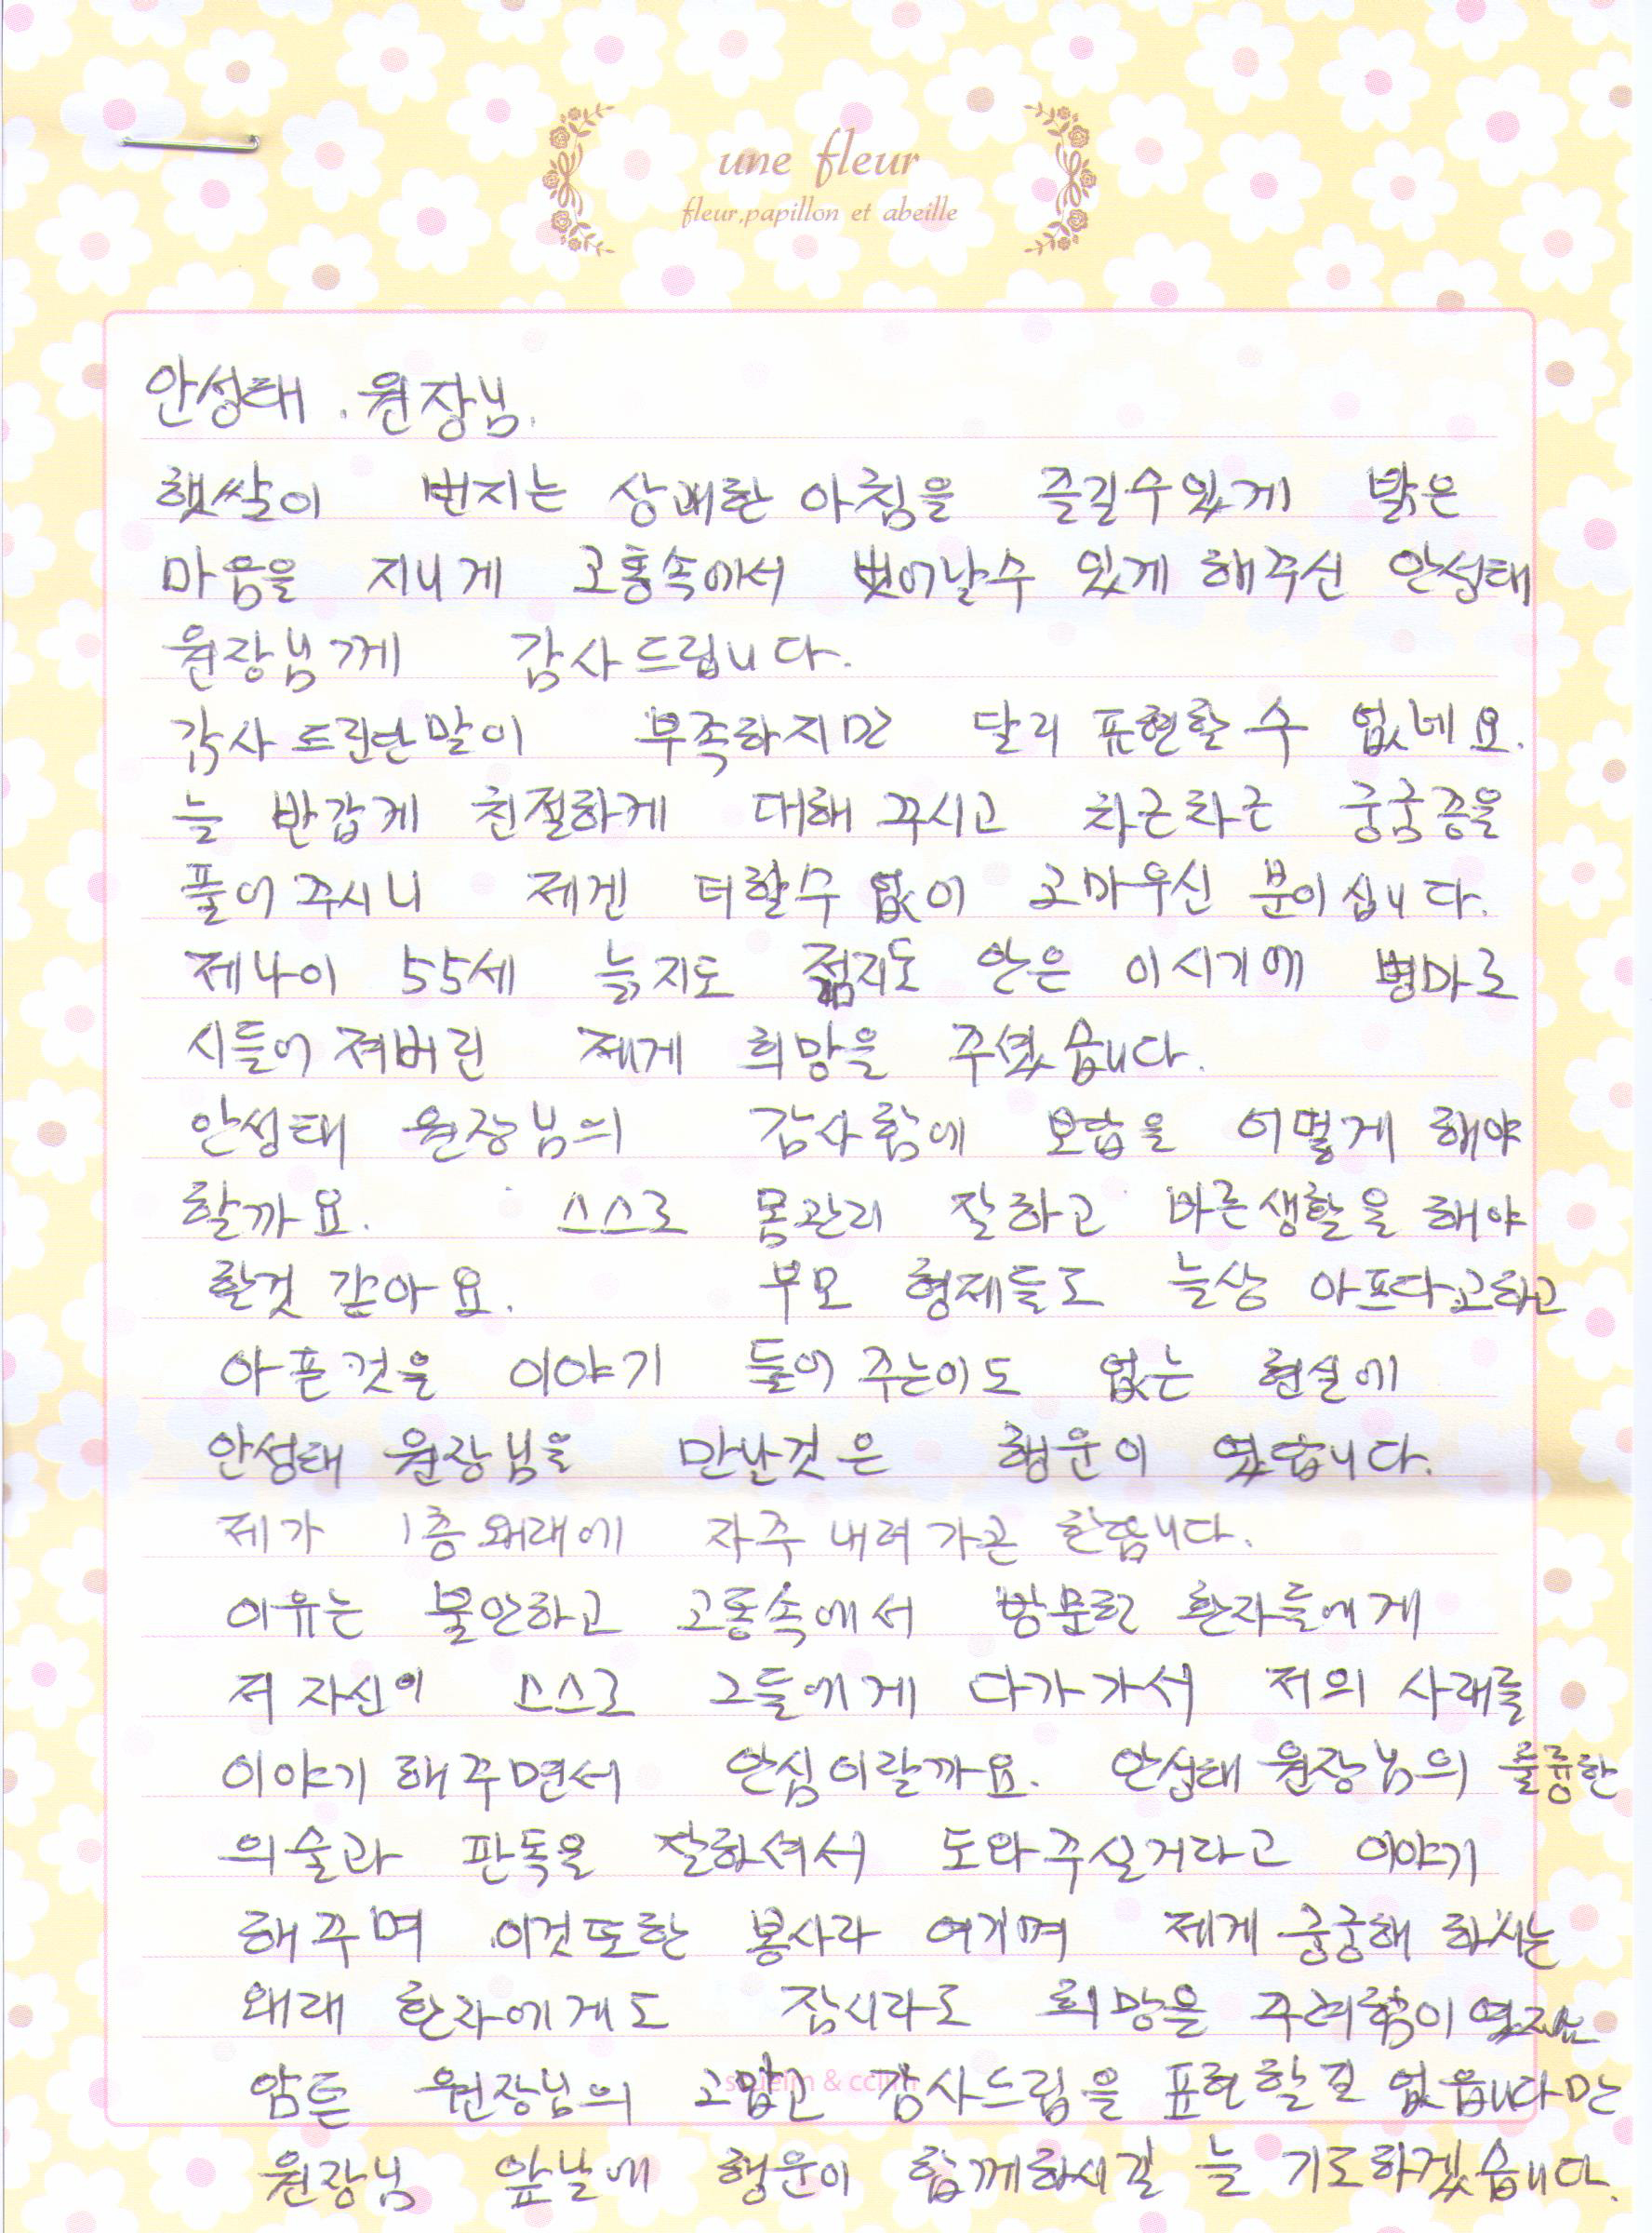 une fleur
fleur,papillon et abeille
안성태 . 원장님.
햇쌀이 번지는 상쾌한 아침을 즐길수있게 밝은
마음을 지니게 고통속에서 벗어날수 있게 해주신 안성태
원장님께 감사드립니다.
감사 드린단 말이 부족하지만 달리 표현할 수 없네요.
늘 반갑게 친절하게 대해 주시고 차근차근 궁굼증을
풀어주시니 제겐 더할수 없이 고마우신 분이십니다.
제나이 55세 늙지도 젊지도 안은 이시기에 병마로
시들어 져버린 제게 희망을 주셨습니다.
안성태 원장님의 감사함에 보답을 어떻게 해야
할까요. 스스로 몸관리 잘하고 바른생활을 해야
할것 같아요. 부모 형제들도 늘상 아프다고하고
아픈것을 이야기 들어주는이도 없는 현실에
안성태 원장님을 만난것은 행운이 였답니다.
제가 1층 왜래에 자주 내려가곤 한답니다.
이유는 불안하고 고통속에서 방문한 환자들에게
저 자신이 스스로 그들에게 다가가서 저의 사례를
이야기 해주면서 안심이랄까요. 안성태 원장님의 훌륭한
의술과 판독을 잘하셔서 도와주실거라고 이야기
해주며 이것또한 봉사라 여기며 제게 궁궁해 하시는
왜래 환자에게도 잠시라도 희망을 주려함이
암튼 원장님의 고맙고 감사드림을 표현할길 없읍니다만
원장님 앞날에 행운이 함께하시길 늘 기도하겠습니다.